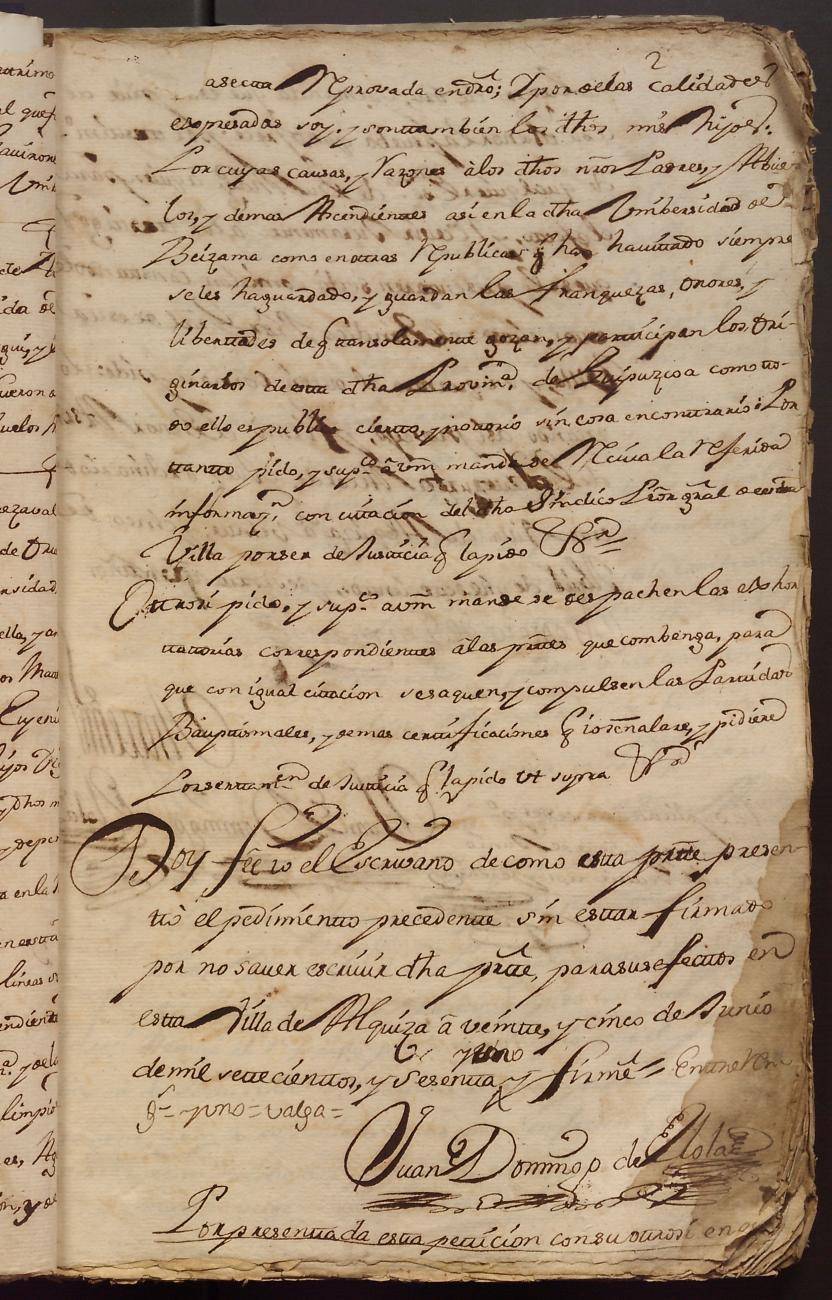 2
a secta Reprovada en dro; Y por de las Calidades
expresadas soy, y son tambien los dhos mis hijos:
Por cuyas causas, y razones â los dhos nros Padres, y Abue
los, y demas Ascendientes asi en la dha Vmbersidad de
Beizama como en otras Republicas q han havitado siempre
se les ha guardado, y guardan las franquezas, onores, y
libertades de q tan solamente gozan, y participan los Ori-
ginarios de esta dha Provinª de Guipuzcoa como to-
do ello es publico cierto, y notorio sin cosa en contrario: Por
tanto pido, y supco â vm mande se Reciva la Referida
informazn con citacion del dho Sindico Pror gral de esta
Villa por ser de Justicia q la pido
Otrosi pido, y supco a vm mande se despachen las exhor
tatorias correspondientes â las prtes que combenga, para
que con igual citacion se saquen, y compulsen las Partidas
Bauptismales, y demas certificaciones q io señalare, y pidiere
Por ser tamn de Justicia q la pido vt supra
Doy feê io el Escrivano de como esta prte presen-
tò el pedimiento precedente sin estar firmado
por no saver escrivir dha prte, para sus efectos en
esta Villa de Alquiza â veinte, y cinco de Junio
y uno
de mil setecientos, y sesenta y firmê = Entre Ren
gs = y uno = valga =
Juan Domingo de
Por presentada esta peticion con su otrosi en